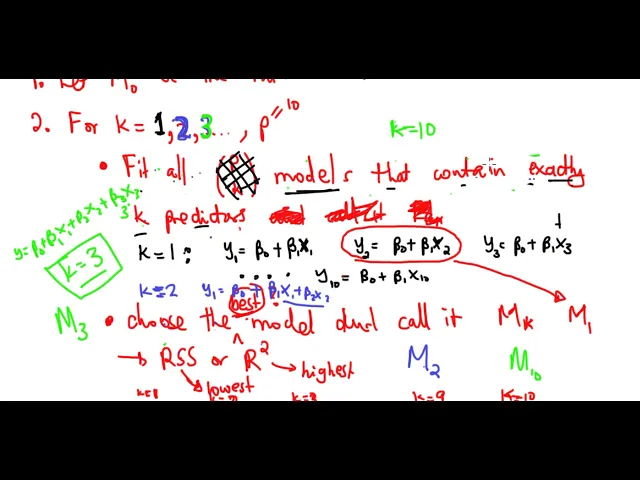 2. For k = 1, 2, 3, ..., p = 10
k=10
• Fit all models that contain exactly
k predictors
y = β0 + β1X1 + β2X2 + β3X3
k = 3
k = 1 : y1 = β0 + β1X1 y2 = β0 + β1X2 y3 = β0 + β1X3
.... y10 = β0 + β1X10
k = 2 y1 = β0 + β1X1 + β2X2
best
M3 • choose the model and call it Mk M1
→ RSS or R² → highest M2 M10
lowest
k=1 k=2 k=3 k=9 k=10